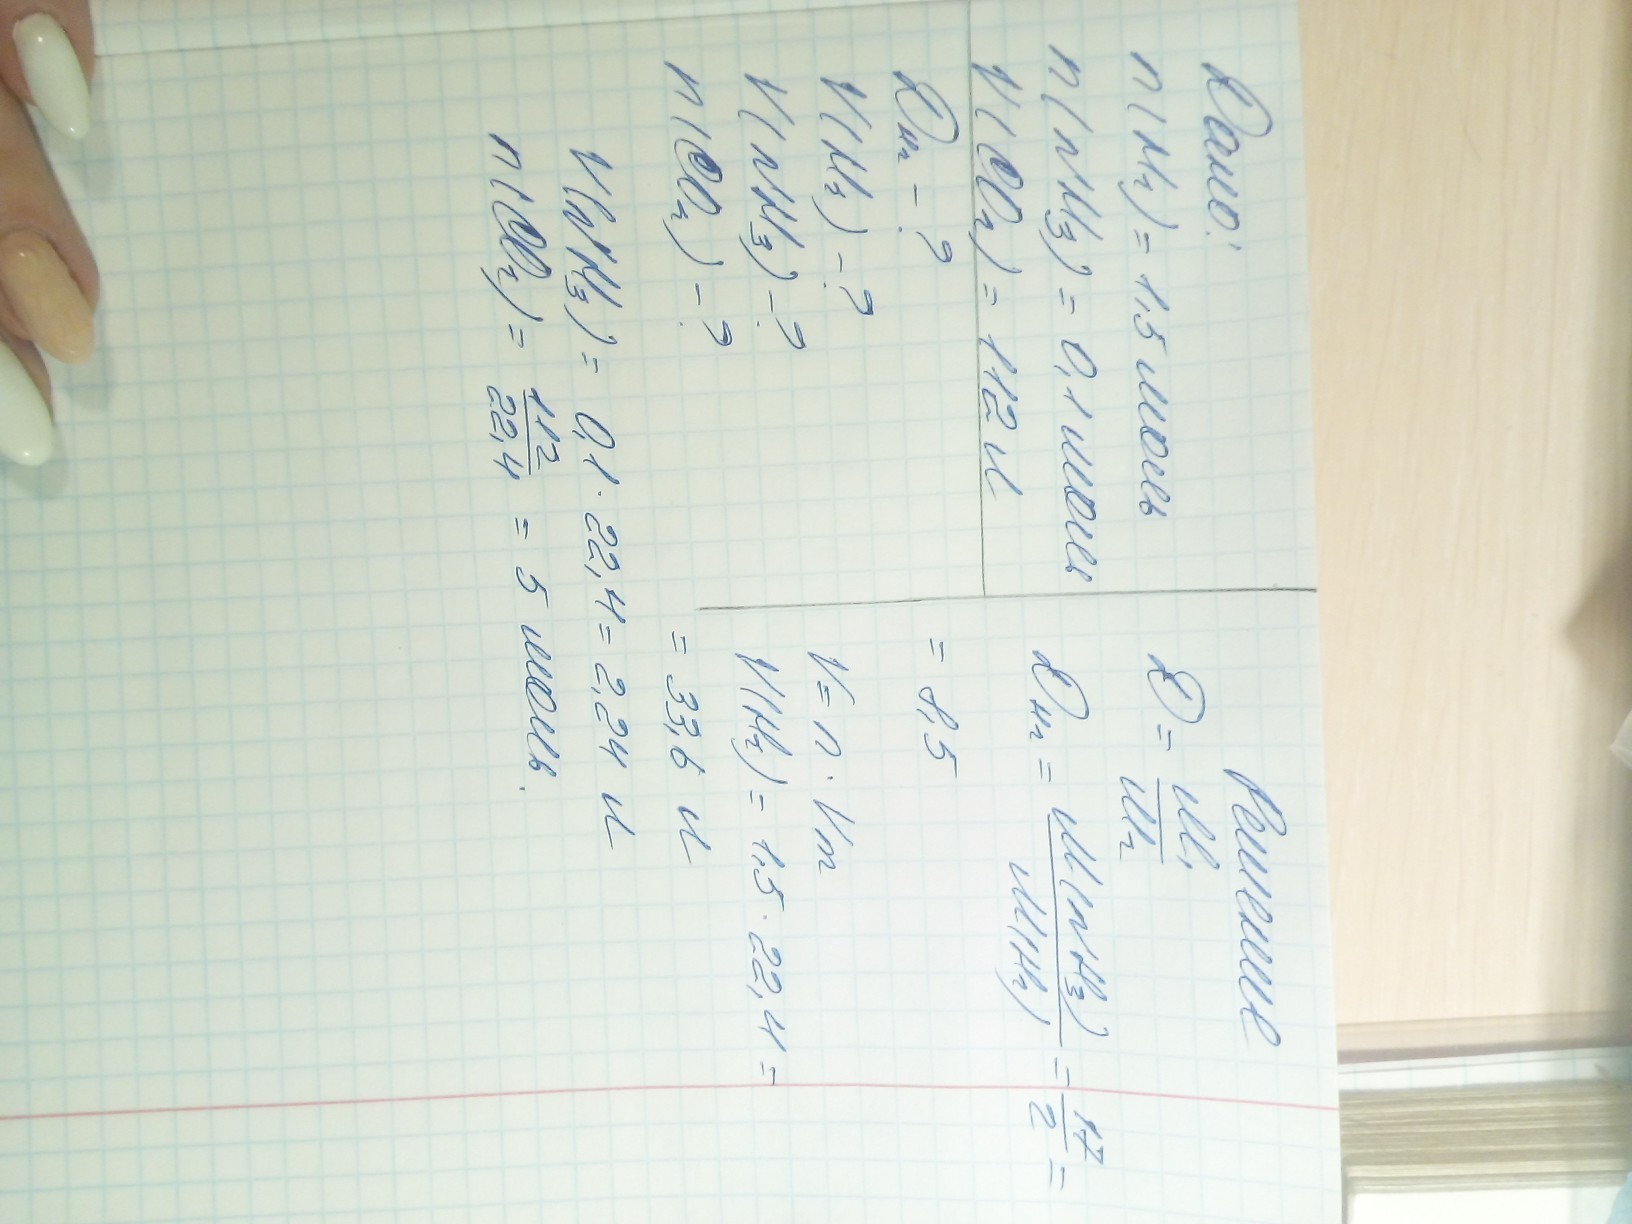 Дано:
n(H₂) = 1,5 моль
n(NH₃) = 0,1 моль
V(CO₂) = 112 л
D H₂ - ?
V(H₂) - ?
V(NH₃) - ?
n(CO₂) - ?
Решение
D = M₁/M₂
D H₂ = M(NH₃)/M(H₂) = 17/2 =
= 8,5
V = n · Vm
V(H₂) = 1,5 · 22,4 =
= 33,6 л
V(NH₃) = 0,1 · 22,4 = 2,24 л
n(CO₂) = 112/22,4 = 5 моль.